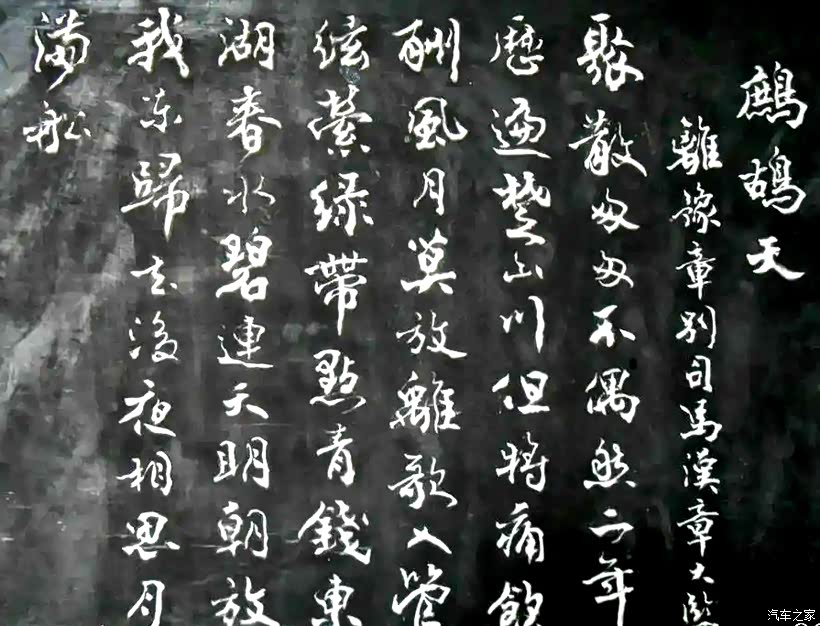 鷓鴣天
離豫章別司馬漢章大監
聚散匆匆不偶然二年
歷遍楚山川但將痛飲
酬風月莫放離歌入管
絃縈綠帶點青錢東
湖春水碧連天明朝放
我東歸去後夜相思月
滿船
汽车之家